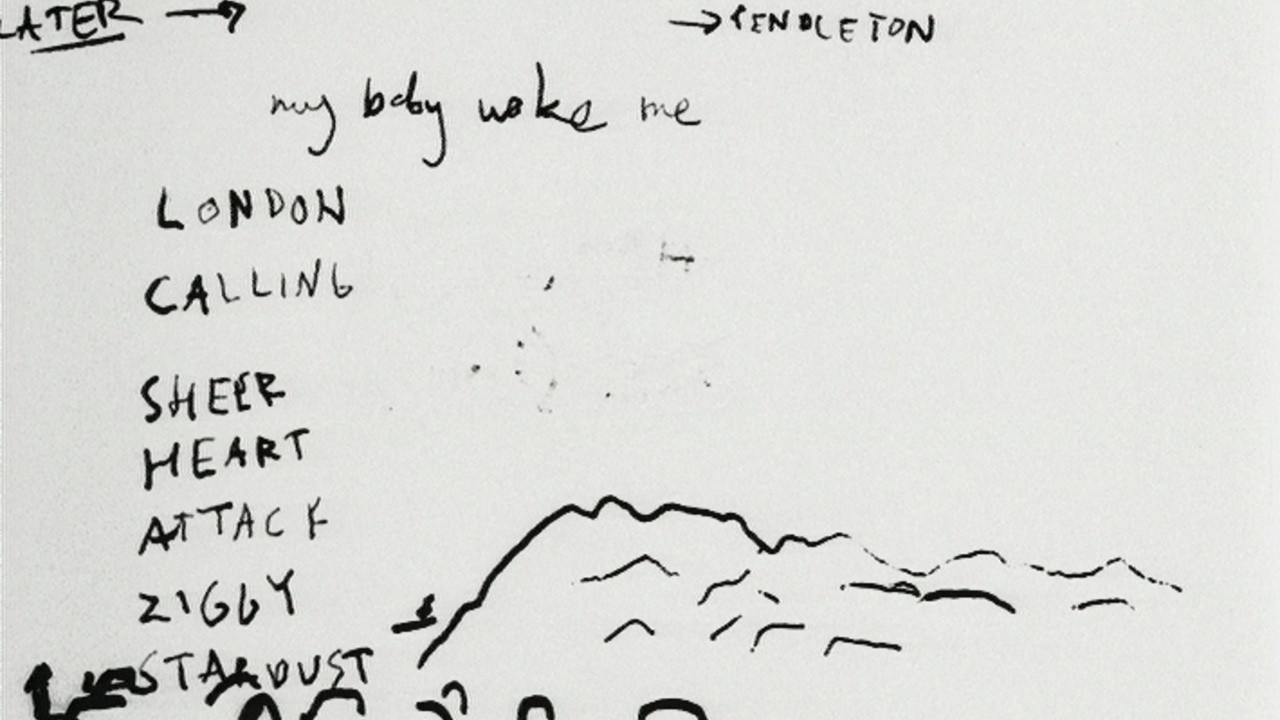 LATER → → PENDLETON
my baby woke me
LONDON
CALLING
SHEER
HEART
ATTACK
ZIGGY
STARDUST